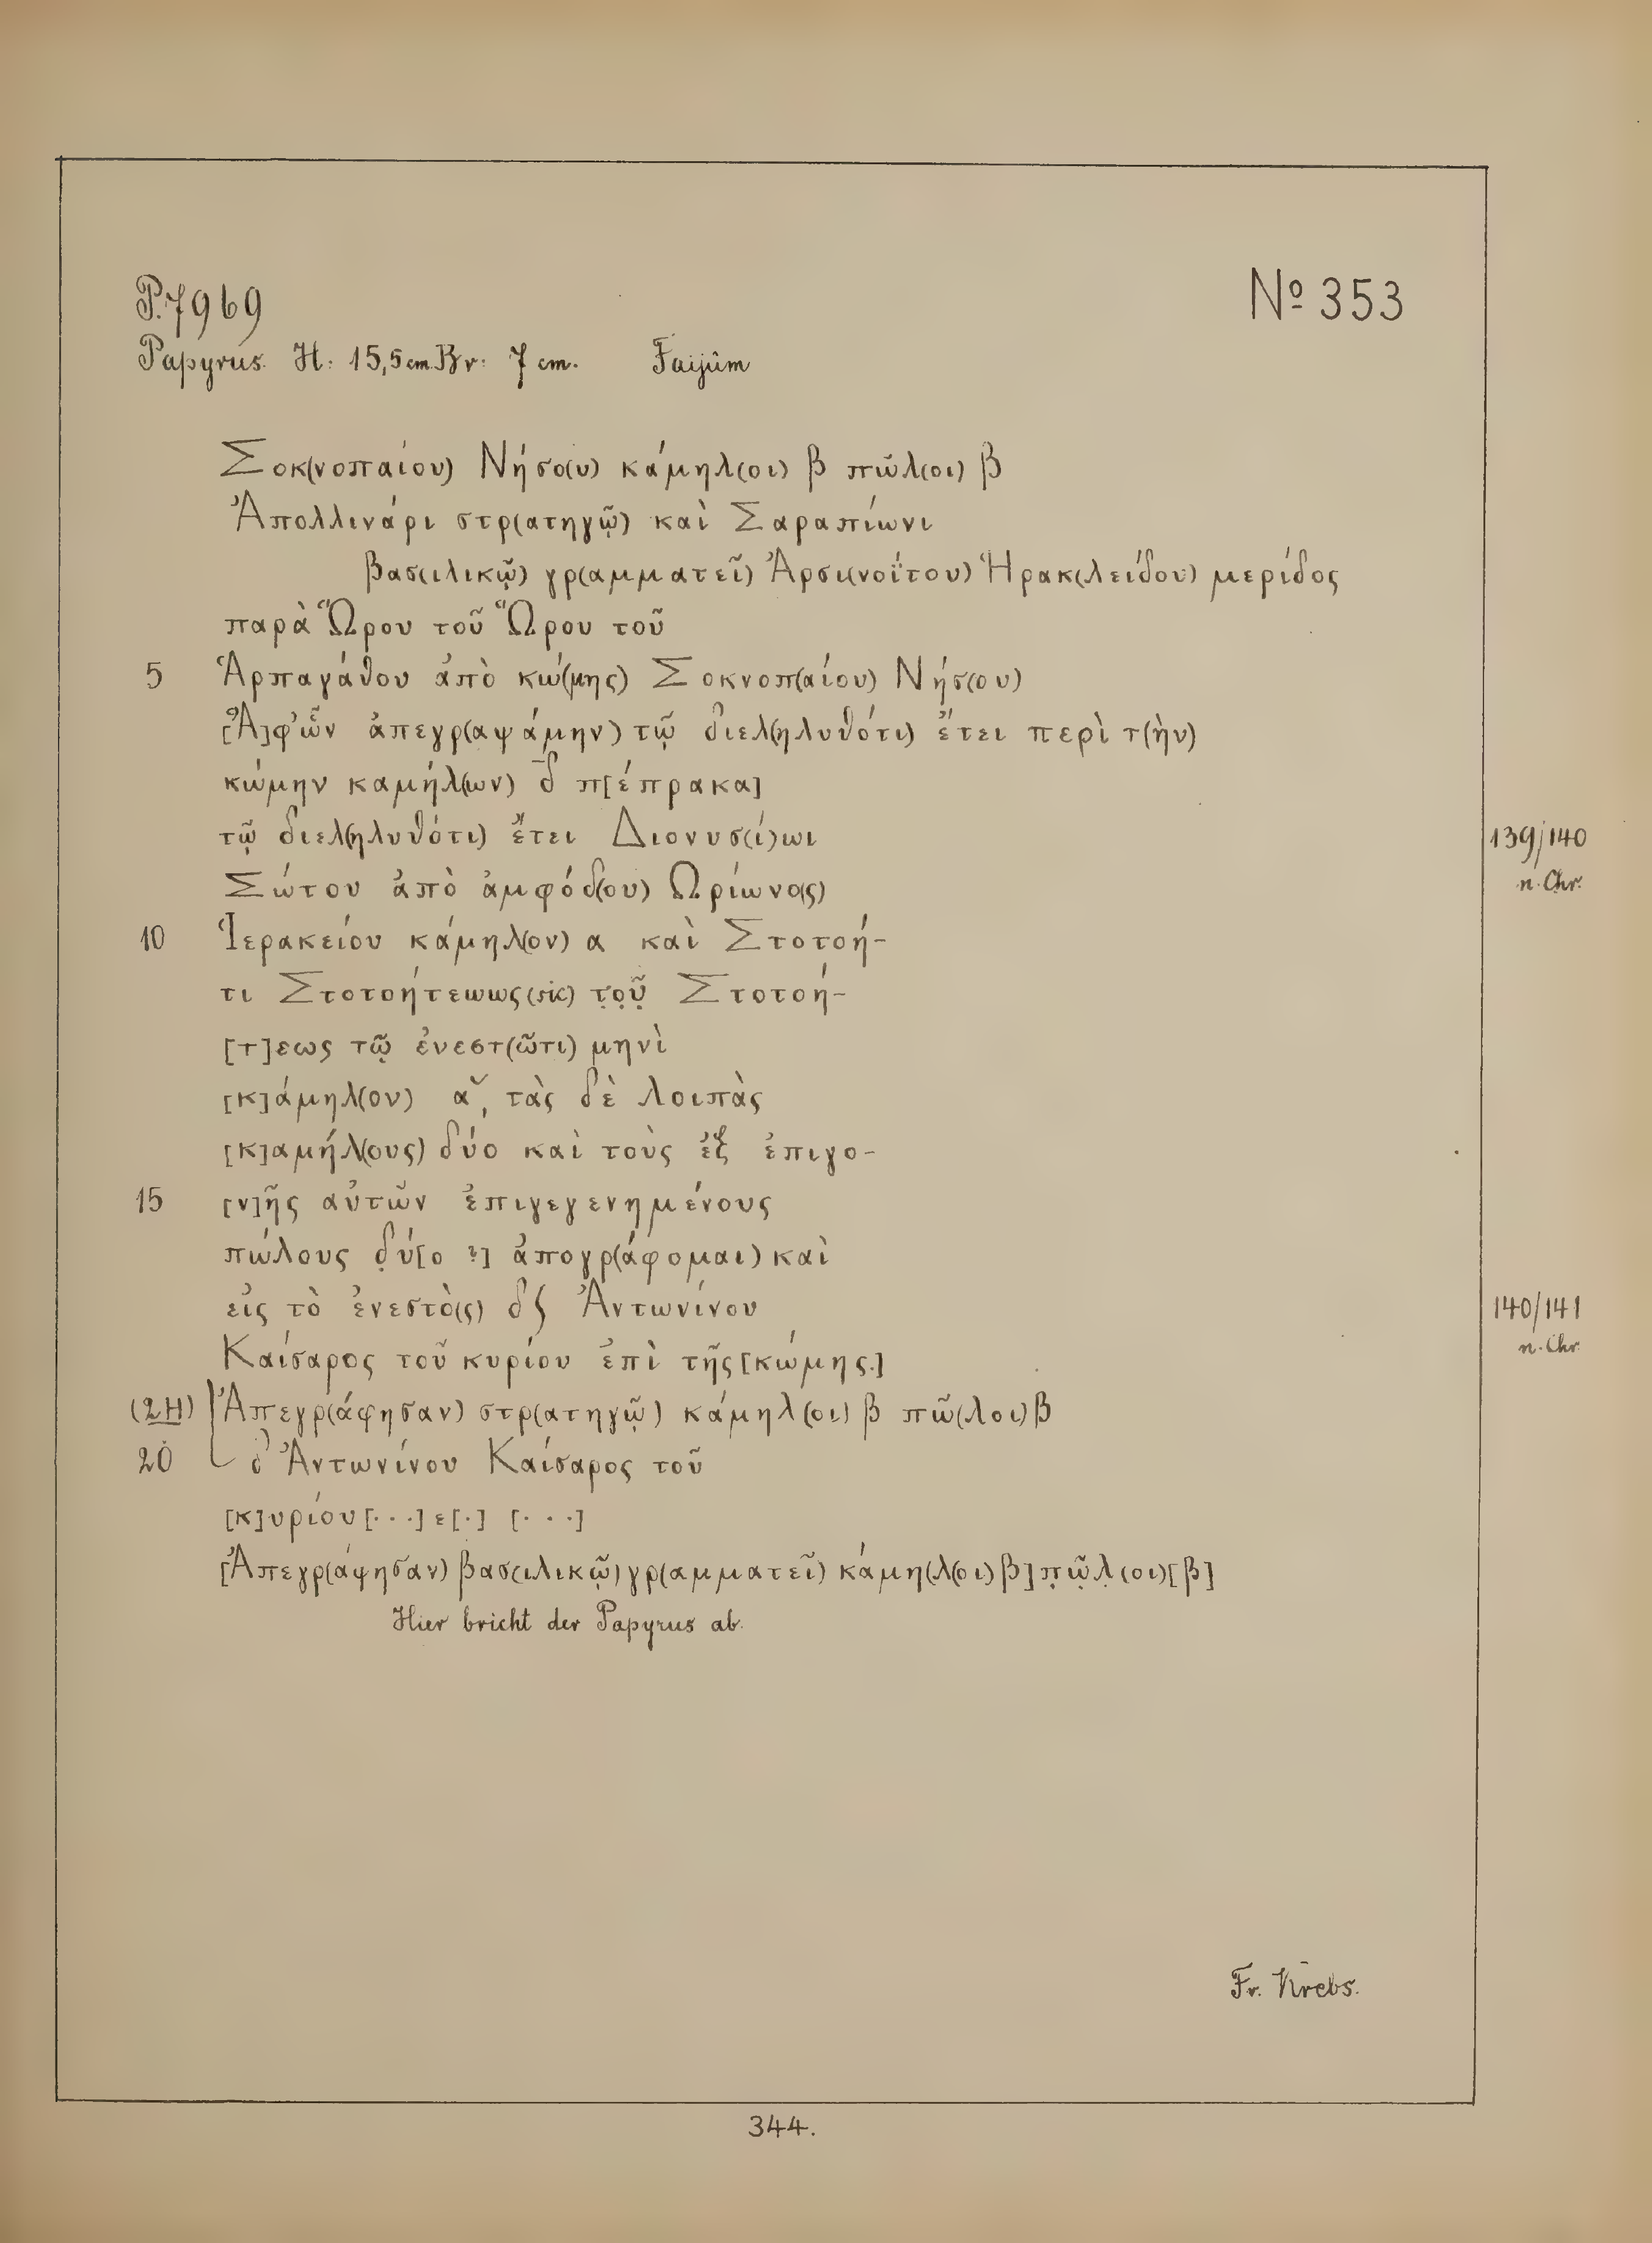 P. 7969
Nº 353
Papyrus. H: 15,5 cm Br: 7 cm. Faijûm
Σοκ(νοπαίου) Νήσο(υ) κάμηλ(οι) β πῶλ(οι) β
Ἀπολλινάρι στρ(ατηγῷ) καὶ Σαραπίωνι
βασ(ιλικῷ) γρ(αμματεῖ) Ἀρσι(νοΐτου) Ἡρακ(λείδου) μερίδος
παρὰ Ὥρου τοῦ Ὥρου τοῦ
5 Ἁρπαγάθου ἀπὸ κώ(μης) Σοκνοπ(αίου) Νήσ(ου)
[Ἀ]φ' ὧν ἀπεγρ(αψάμην) τῷ διελ(ηλυθότι) ἔτει περὶ τ(ὴν)
κώμην καμήλ(ων) δ̄ π[έπρακα]
τῷ διελ(ηλυθότι) ἔτει Διονυσ(ί)ωι 139/140
n. Chr.
Σώτου ἀπὸ ἀμφόδ(ου) Ὡρίωνο(ς)
10 Ἱερακείου κάμηλ(ον) α καὶ Στοτοή-
τι Στοτοήτεωως (sic) τ̣ο̣ῦ̣ Στοτοή-
[τ]εως τῷ ἐνεστ(ῶτι) μηνὶ
[κ]άμηλ(ον) ᾰ, τὰς δὲ λοιπὰς
[κ]αμήλ(ους) δύο καὶ τοὺς ἐξ ἐπιγο-
15 [ν]ῆς αὐτῶν ἐπιγεγενημένους
πώλους δ̣ύ[ο ?] ἀπογρ(άφομαι) καὶ
εἰς τὸ ἐνεστὸ(ς) δ ʃ Ἀντωνίνου 140/141
n. Chr.
Καίσαρος τοῦ κυρίου ἐπὶ τῆς [κώμης.]
(2H) Ἀπεγρ(άφησαν) στρ(ατηγῷ) κάμηλ(οι) β πῶ(λοι) β
20 δ' Ἀντωνίνου Καίσαρος τοῦ
[κ]υρίου [· · ·] ε[·] [· · ·]
[Ἀπεγρ(άφησαν) βασ(ιλικῷ) γρ(αμματεῖ) κάμη(λ(οι) β] π̣ῶ̣λ̣(οι) [β]
Hier bricht der Papyrus ab.
Fr. Krebs.
344.